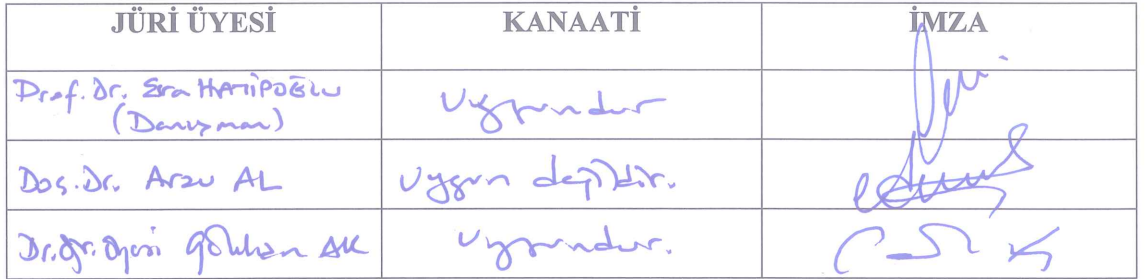 JÜRİ ÜYESİ KANAATİ İMZA
Prof. Dr. Esra HATİPOĞLU Uygundur
(Danışman)
Doç. Dr. Arzu AL Uygun değildir.
Dr. Öğr. Üyesi Gökhan AK Uygundur.